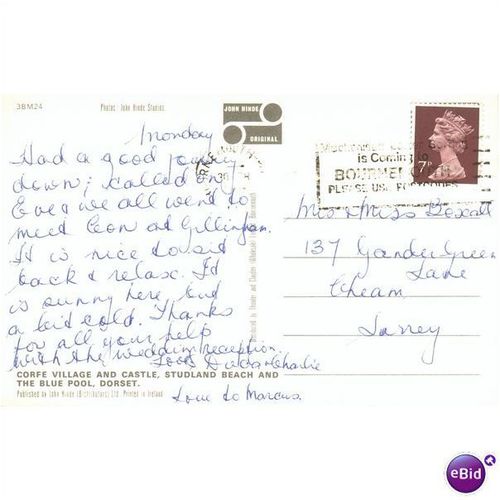 3BM24
Photos: John Hinde Studios.
JOHN HINDE
ORIGINAL
Monday
Had a good journey
down; called on
Eve & we all went to
meet Leon at Gillingham.
It is nice to sit
back & relax. It
is sunny here, but
a bit cold. Thanks
for all your help
with the wedding reception.
Love
Charlie
Love to Marcus.
CORFE VILLAGE AND CASTLE, STUDLAND BEACH AND
THE BLUE POOL, DORSET.
Published by John Hinde (Distributors) Ltd. Printed in Ireland
is Coming
BOURNEMOUTH
PLEASE USE POSTCODES
7P
Mrs & Miss
137 Gander Green
Lane
Cheam
Surrey
eBid